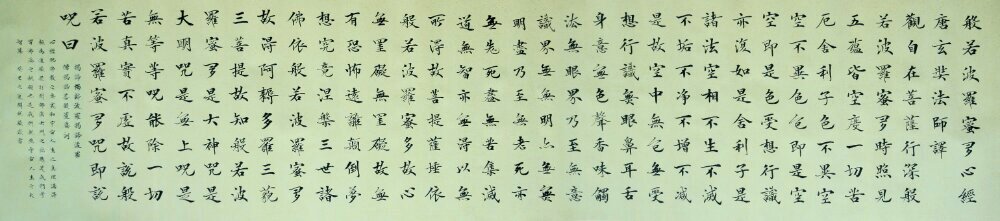 般若波羅蜜多心經
唐玄奘法師譯
觀自在菩薩行深般
若波羅蜜多時照見
五蘊皆空度一切苦
厄舍利子色不異空
空不異色色即是空
空即是色受想行識
亦復如是舍利子是
諸法空相不生不滅
不垢不淨不增不減
是故空中無色無受
想行識無眼耳鼻舌
身意無色聲香味觸
法無眼界乃至無意
識界無無明亦無無
明盡乃至無老死亦
無老死盡無苦集滅
道無智亦無得以無
所得故菩提薩埵依
般若波羅蜜多故心
無罣礙無罣礙故無
有恐怖遠離顛倒夢
想究竟涅槃三世諸
佛依般若波羅蜜多
故得阿耨多羅三藐
三菩提故知般若波
羅蜜多是大神咒是
大明咒是無上咒是
無等等咒能除一切
苦真實不虛故說般
若波羅蜜多咒即說
咒曰
揭諦揭諦波羅揭諦波羅
僧揭諦菩提薩婆訶